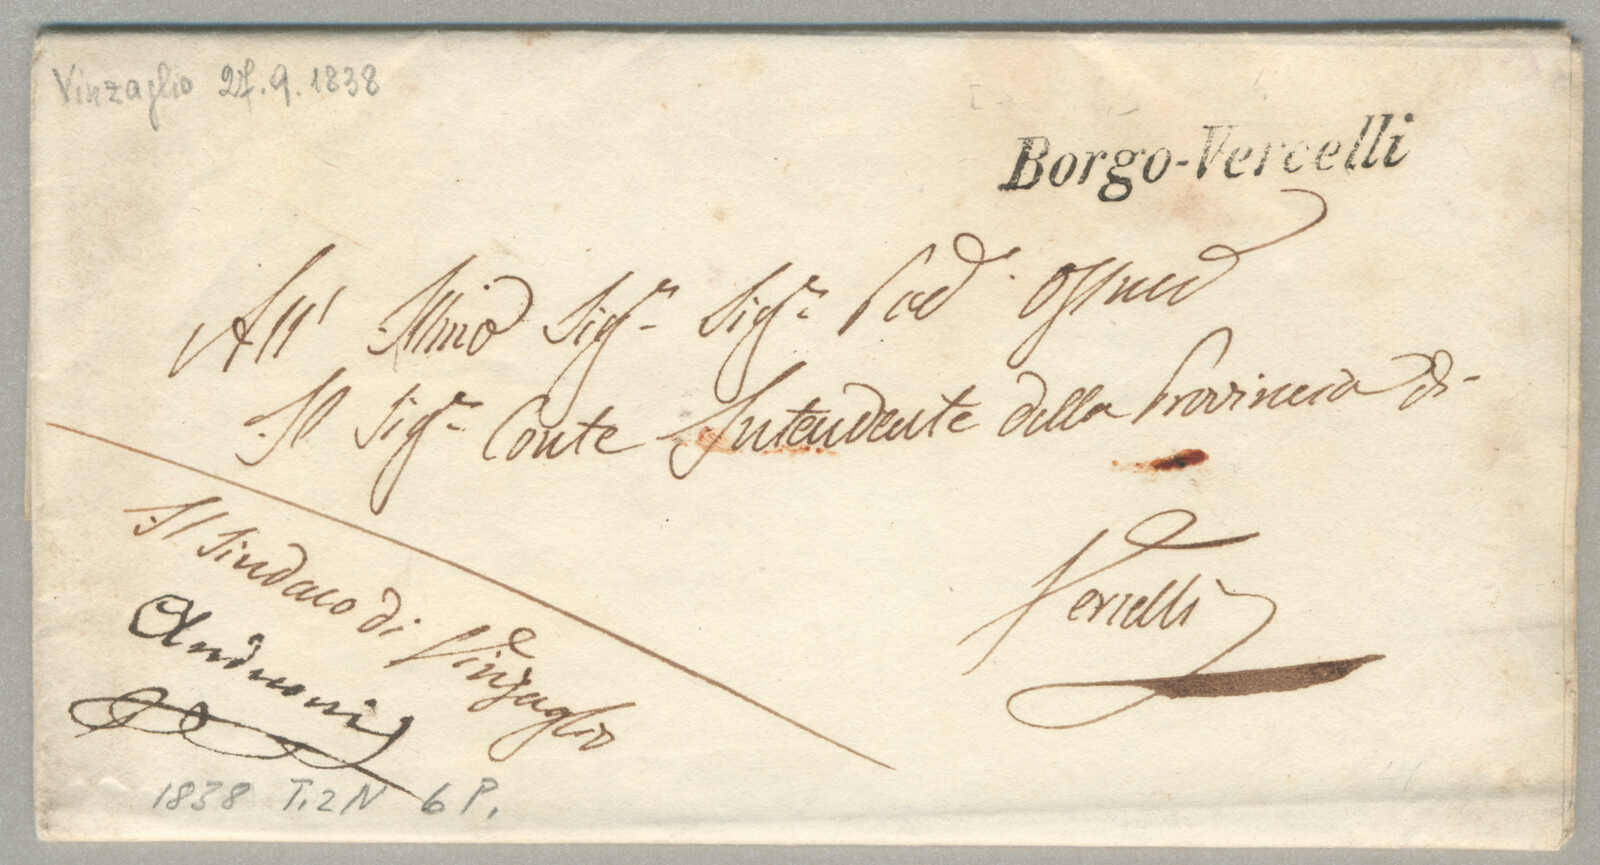 Vinzaglio 27.9.1838
Borgo-Vercelli
All' Illmo Sig.r Sig.r Pad. Ossmo
Il Sig.r Conte Intendente della Provincia di
Vercelli
Il Sindaco di Vinzaglio
1838 T.2N 6 P.